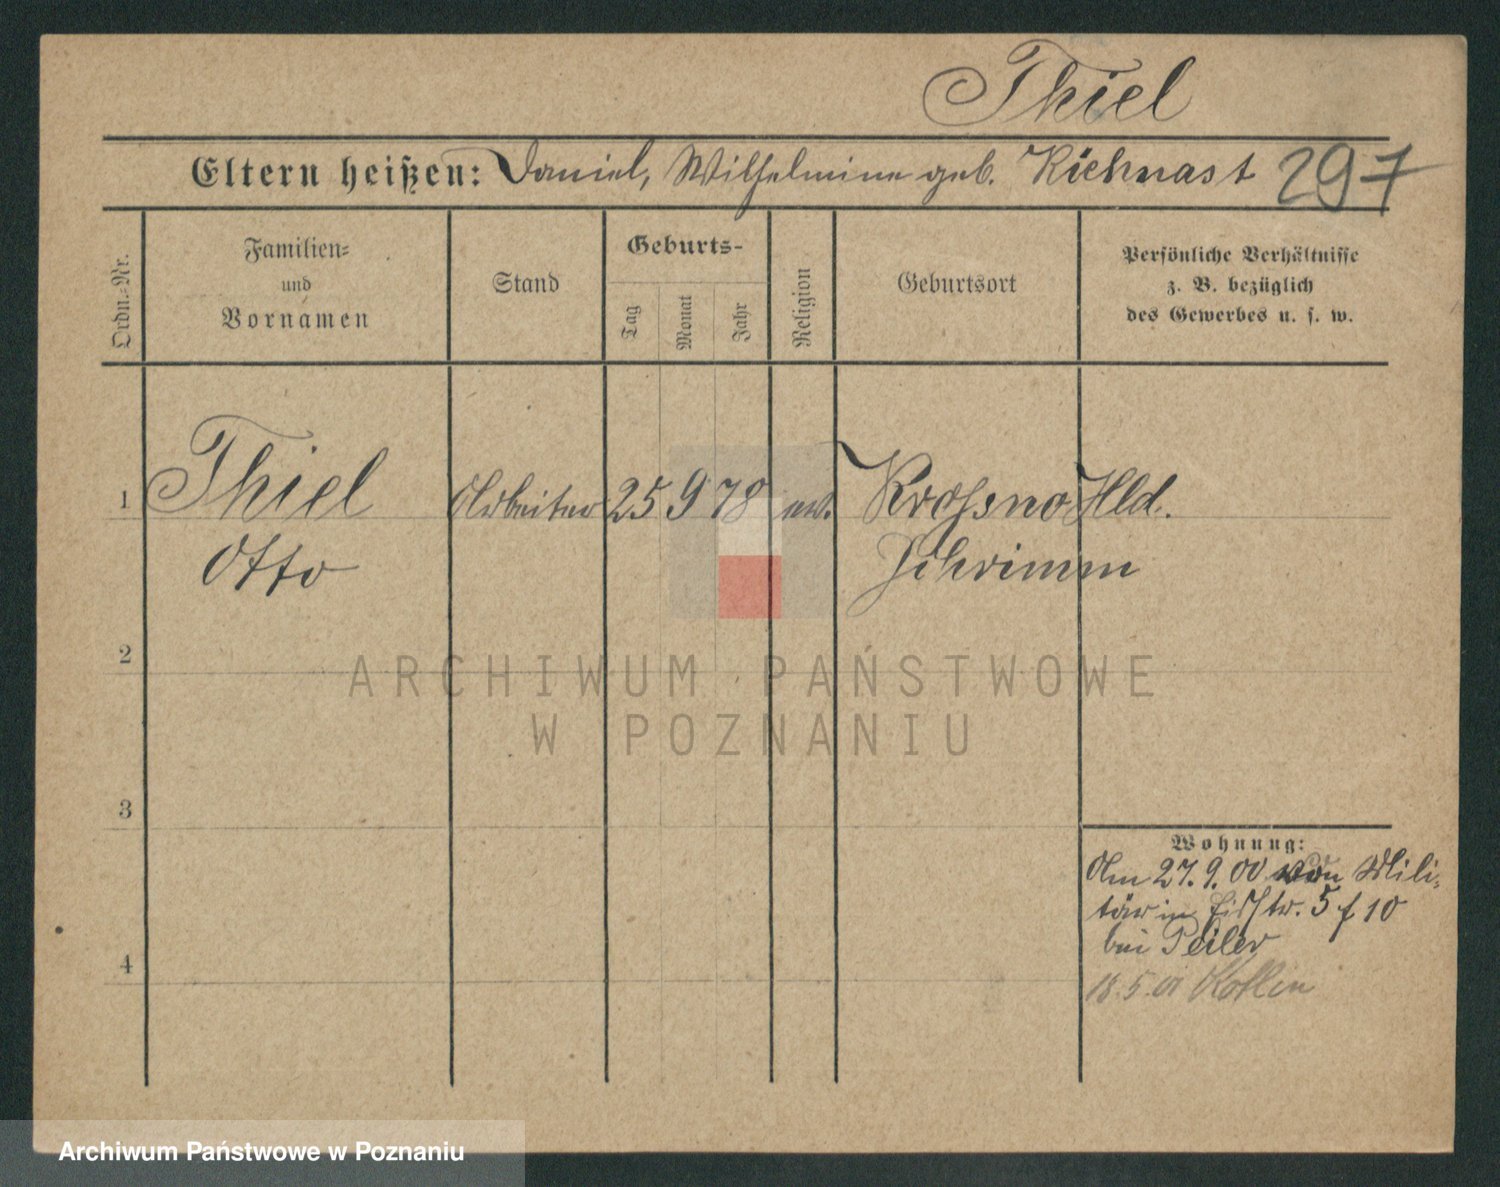 Thiel
Eltern heißen: Daniel, Wilhelmine geb. Kiehnast 297
Ordn.-Nr.
Familien-
und
Vornamen
Stand
Geburts-
Tag
Monat
Jahr
Religion
Geburtsort
Persönliche Verhältnisse
z. B. bezüglich
des Gewerbes u. s. w.
1 Thiel Arbeiter 25 9 78 ev. Krossno Hld.
Otto Schrimm
2
ARCHIWUM PAŃSTWOWE
W POZNANIU
3
Wohnung:
Am 27.9.00 von Mili-
tär in 5 f 10
bei Peiler
18.5.01
4
Archiwum Państwowe w Poznaniu